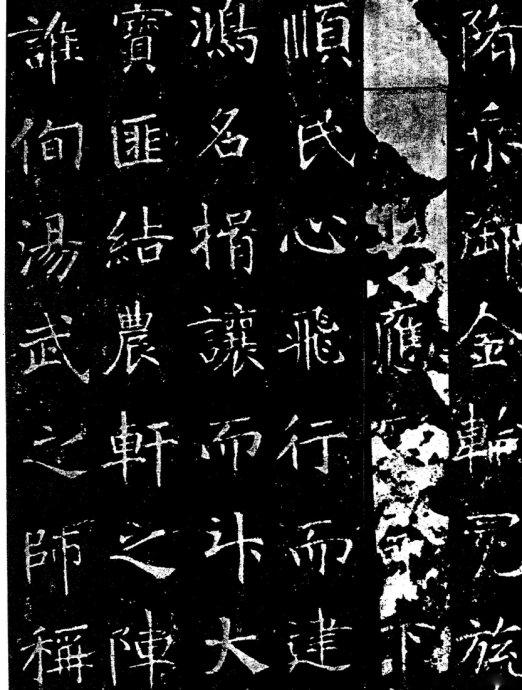 乘御金輪冕旒
應命下
順民心飛行而建
鴻名揖讓而升大
寶匪結農軒之陣
誰侚湯武之師稱